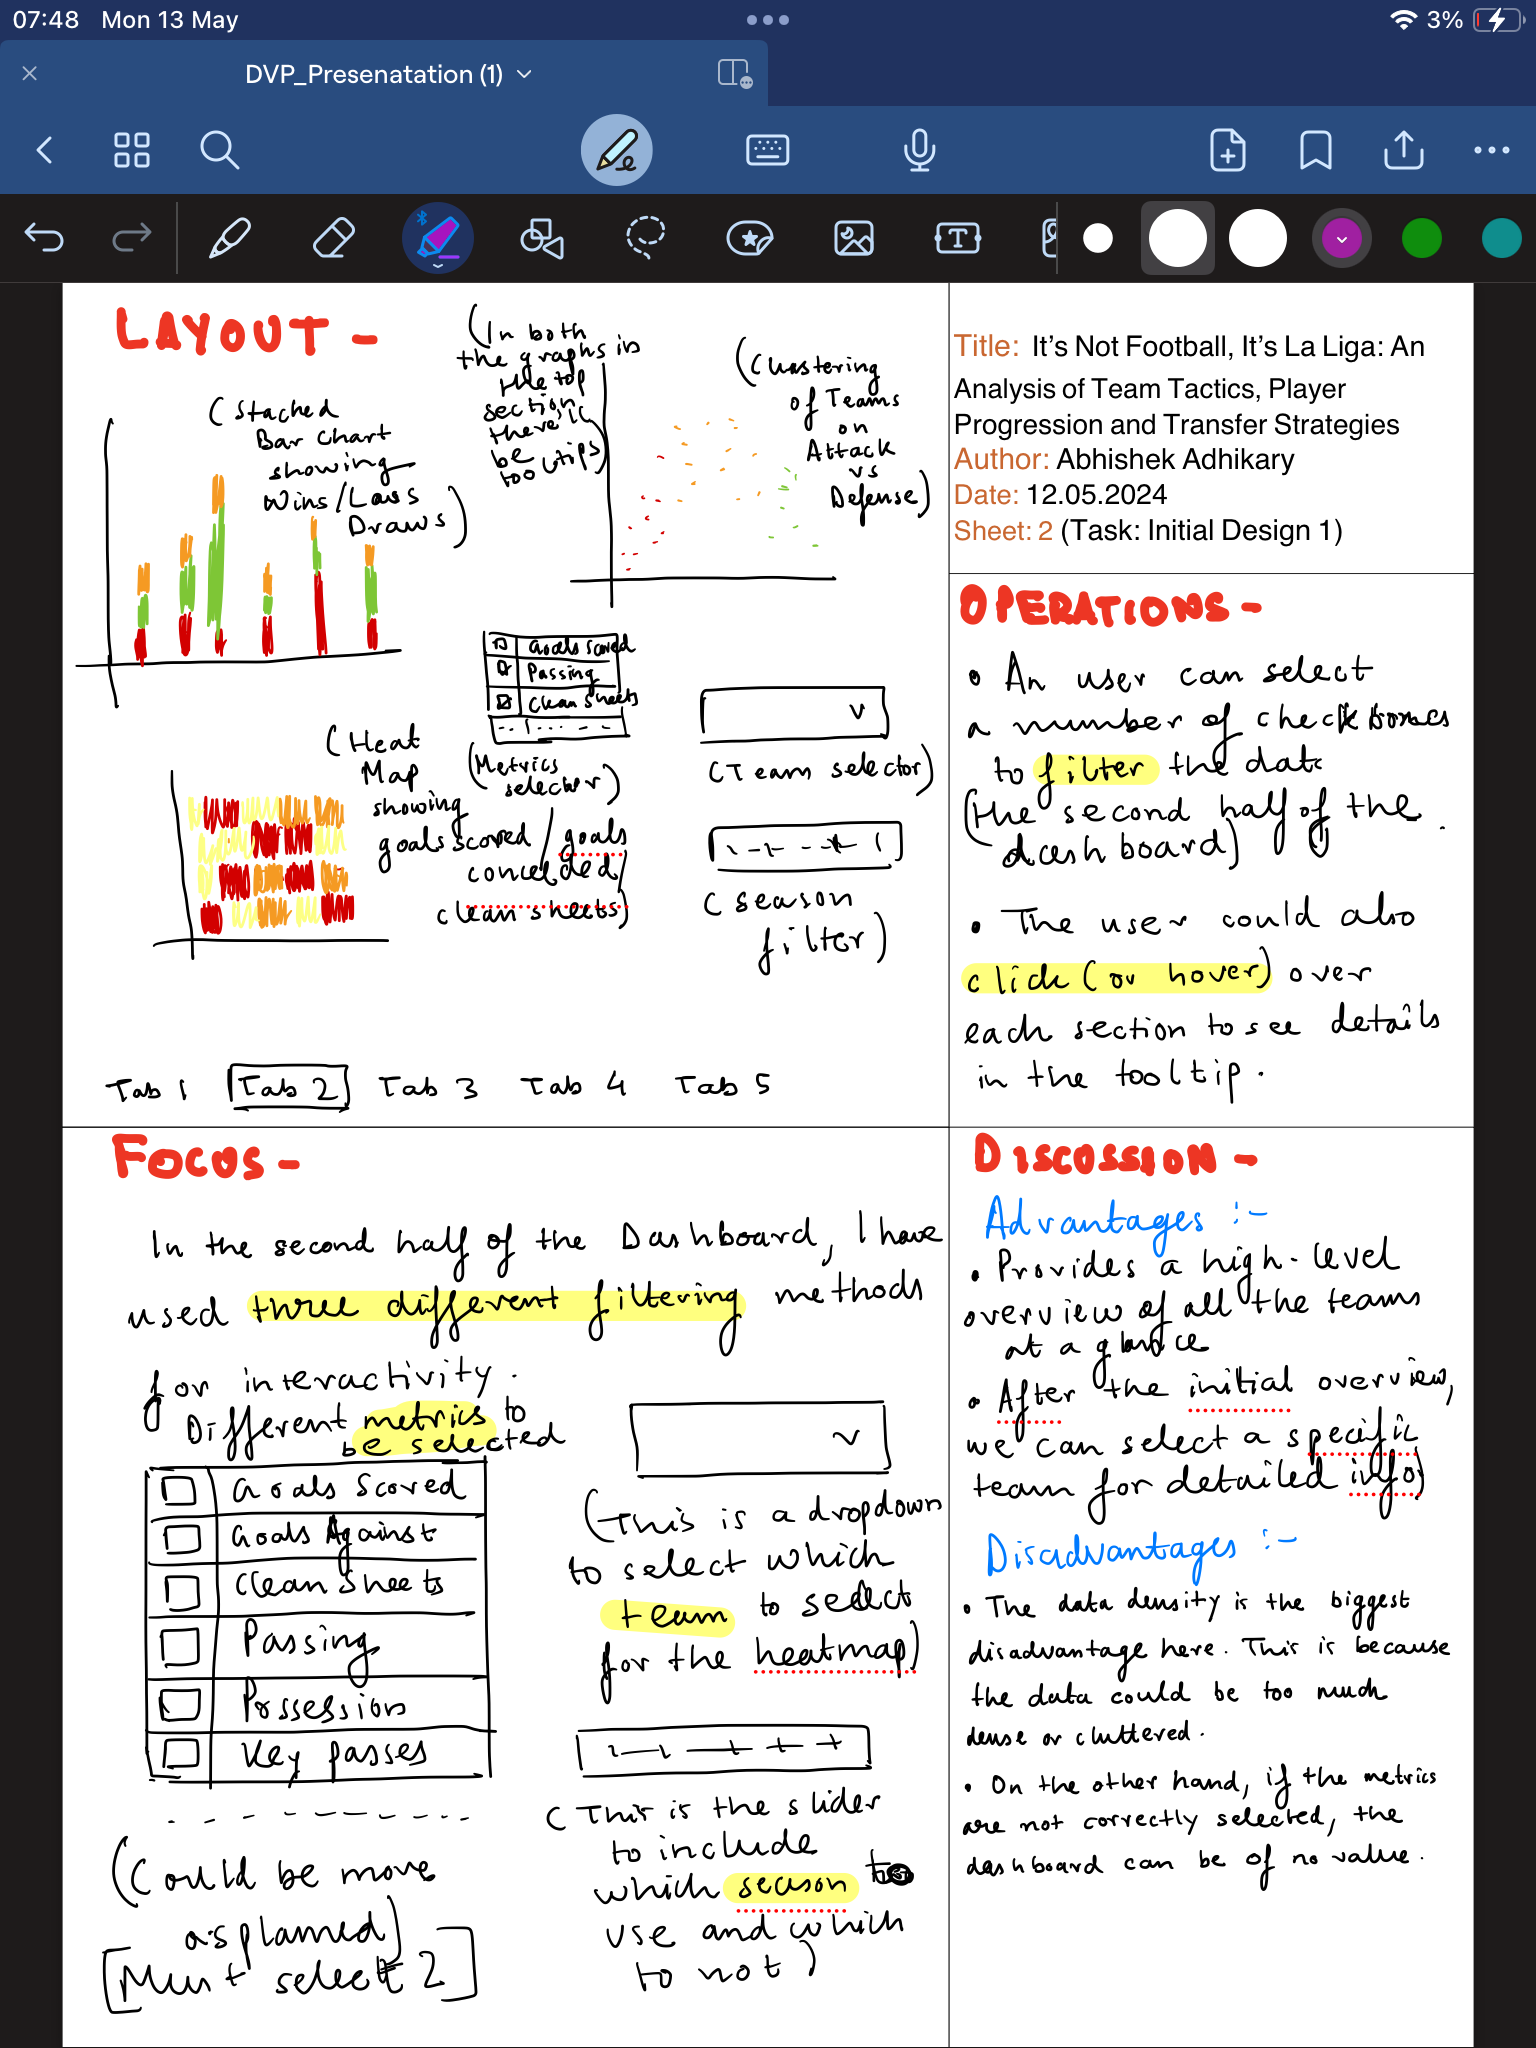 07:48 Mon 13 May
3%
DVP_Presenatation (1)
LAYOUT -
(Stacked
Bar Chart
showing
Wins/Loss
Draws)
(In both
the graphs in
the top
section
there'll
be
tooltips)
(Clustering
of Teams
on
Attack
vs
Defense)
Goals scored
Passing
Clean sheets
(Metrics
selector)
(Team selector)
(season
filter)
(Heat
Map
showing
goals scored/goals
conceded/
clean sheets)
Tab 1 Tab 2 Tab 3 Tab 4 Tab 5
Title: It's Not Football, It's La Liga: An
Analysis of Team Tactics, Player
Progression and Transfer Strategies
Author: Abhishek Adhikary
Date: 12.05.2024
Sheet: 2 (Task: Initial Design 1)
OPERATIONS -
• An user can select
a number of checkboxes
to filter the data
(the second half of the
dashboard).
• The user could also
click (or hover) over
each section to see details
in the tooltip.
FOCUS -
In the second half of the Dashboard, I have
used three different filtering methods
for interactivity.
Different metrics to
be selected
Goals Scored
Goals Against
Clean Sheets
Passing
Possession
Key passes
(Could be more
as planned)
[Must select 2]
(This is a dropdown
to select which
team to select
for the heatmap)
(This is the slider
to include
which season to
use and which
to not)
DISCUSSION -
Advantages :-
• Provides a high-level
overview of all the teams
at a glance
• After the initial overview,
we can select a specific
team for detailed info)
Disadvantages :-
• The data density is the biggest
disadvantage here. This is because
the data could be too much
dense or cluttered.
• On the other hand, if the metrics
are not correctly selected, the
dashboard can be of no value.